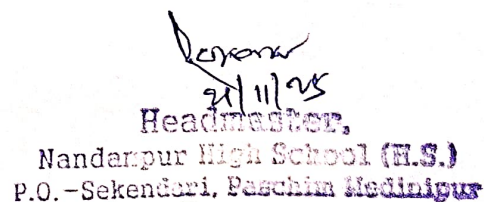 21/11/25
Headmaster,
Nandanpur High School (H.S.)
P.O.-Sekendari, Paschim Medinipur